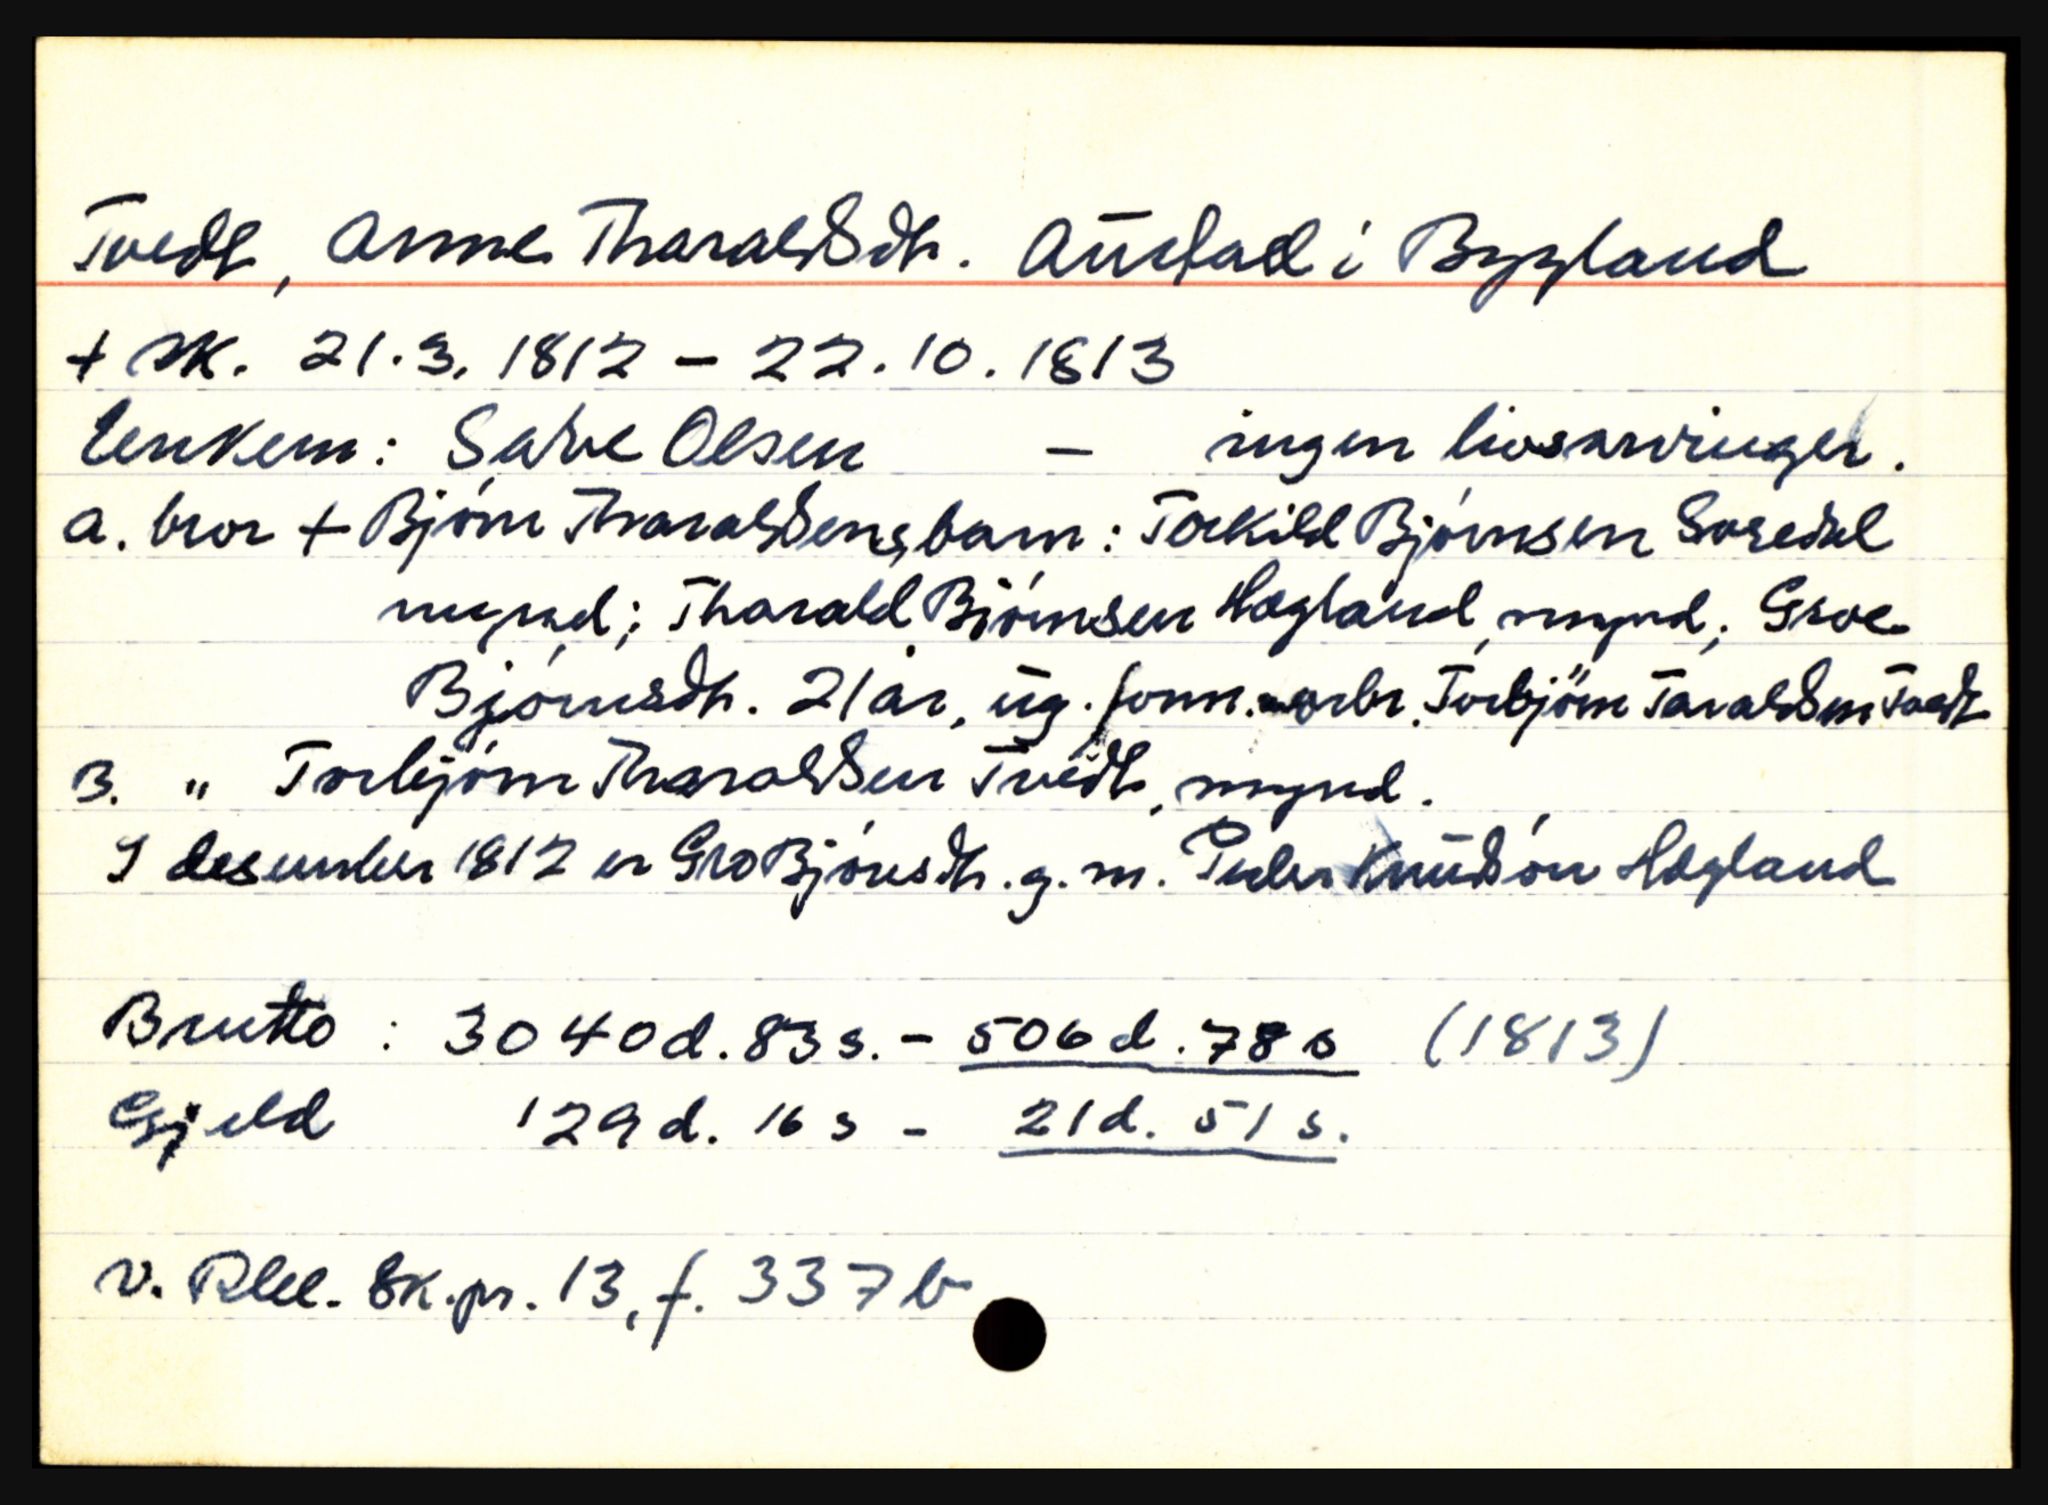 Tvedt, Anne Tharaldsdtr. Austad i Bygland
+ sk. 21.3.1812 - 22.10.1813
Enkem: Salve Olsen - ingen livsarvinger.
a. bror + Bjørn Tharaldsens barn: Torkild Bjørnsen
mynd; Tharald Bjørnsen Hægland, mynd; Groe
Bjørnsdtr. 21 år, ug. form. Torbjørn Taraldsen Tvedt
B. " Torbjørn Tharaldsen Tvedt, mynd.
I desember 1812 er Gro Bjørnsdtr. g.m. Peder Knudsøn Hægland
Brutto : 3040d. 83s. - 506d. 78s (1813)
Gjeld 129d. 16s - 21d. 51s.
V. Rbl. Sk.pr. 13, f. 337b